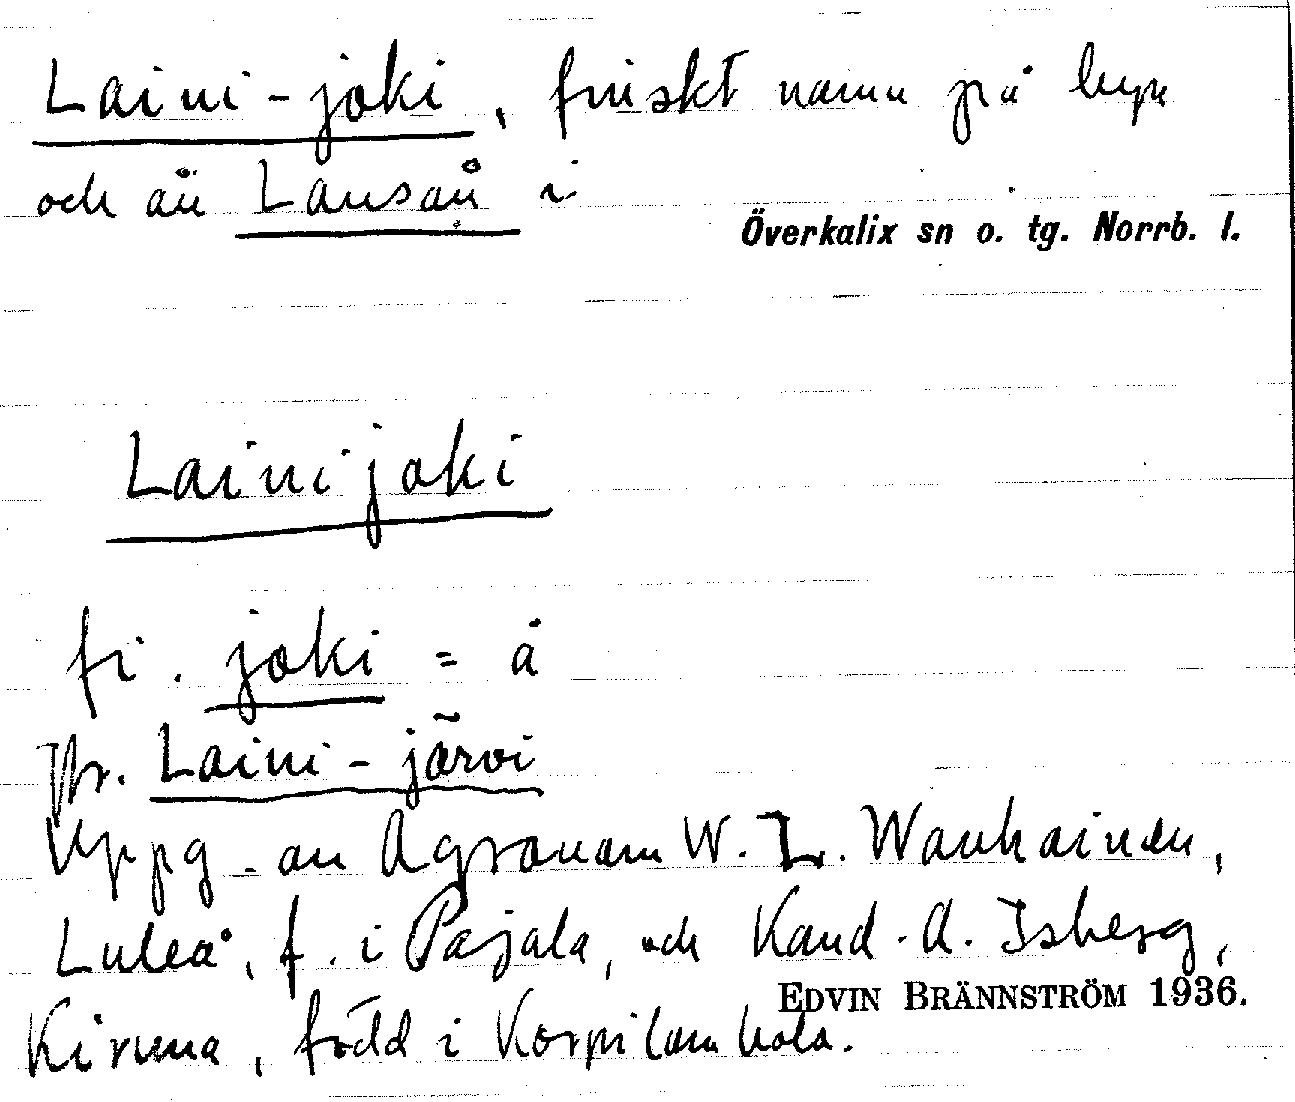 Laini-joki, finskt namn på byn
och ån Lansån i
Överkalix sn o. tg. Norrb. l.
Lainijoki
fi. joki = å
Jfr. Laini-järvi
Uppg. av Agronom W. L. Wanhainen,
Luleå, f. i Pajala, och Kand. A. Isberg,
EDVIN BRÄNNSTRÖM 1936.
Kiruna, född i Korpilombolo.